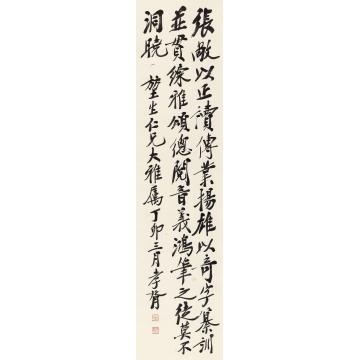 張敞以正讀傳業揚雄以奇字纂訓
並貫綜雅頌總閱音義鴻筆之徒莫不
洞曉
堃生仁兄大雅屬丁卯三月孝胥